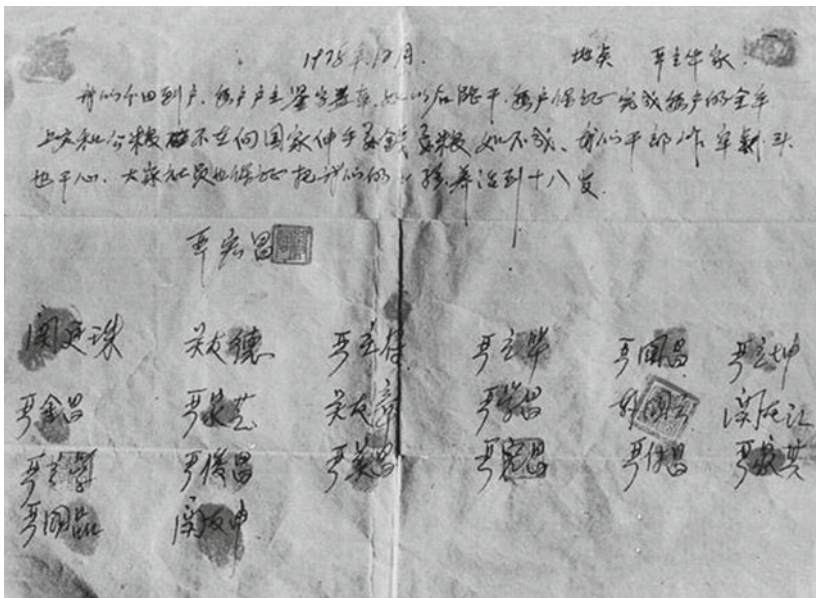 1978年12月. 地点 严立华家.
我们分田到户,每户户主鉴字盖章,如以后能干,每户保证完成每户的全年
上交和公粮 不在向国家伸手要钱要粮 如不成、我们干部作牢刹头
也干心、大家社员也保证把我们的小孩养活到十八岁.
严宏昌
关廷珠 关友德 严立符 严立华 严国昌 严立坤
严金昌 严家芝 关友章 严学昌 韩国云 关友江
严立学 严俊昌 严美昌 严宏昌 严付昌 严家其
严国品 关友申